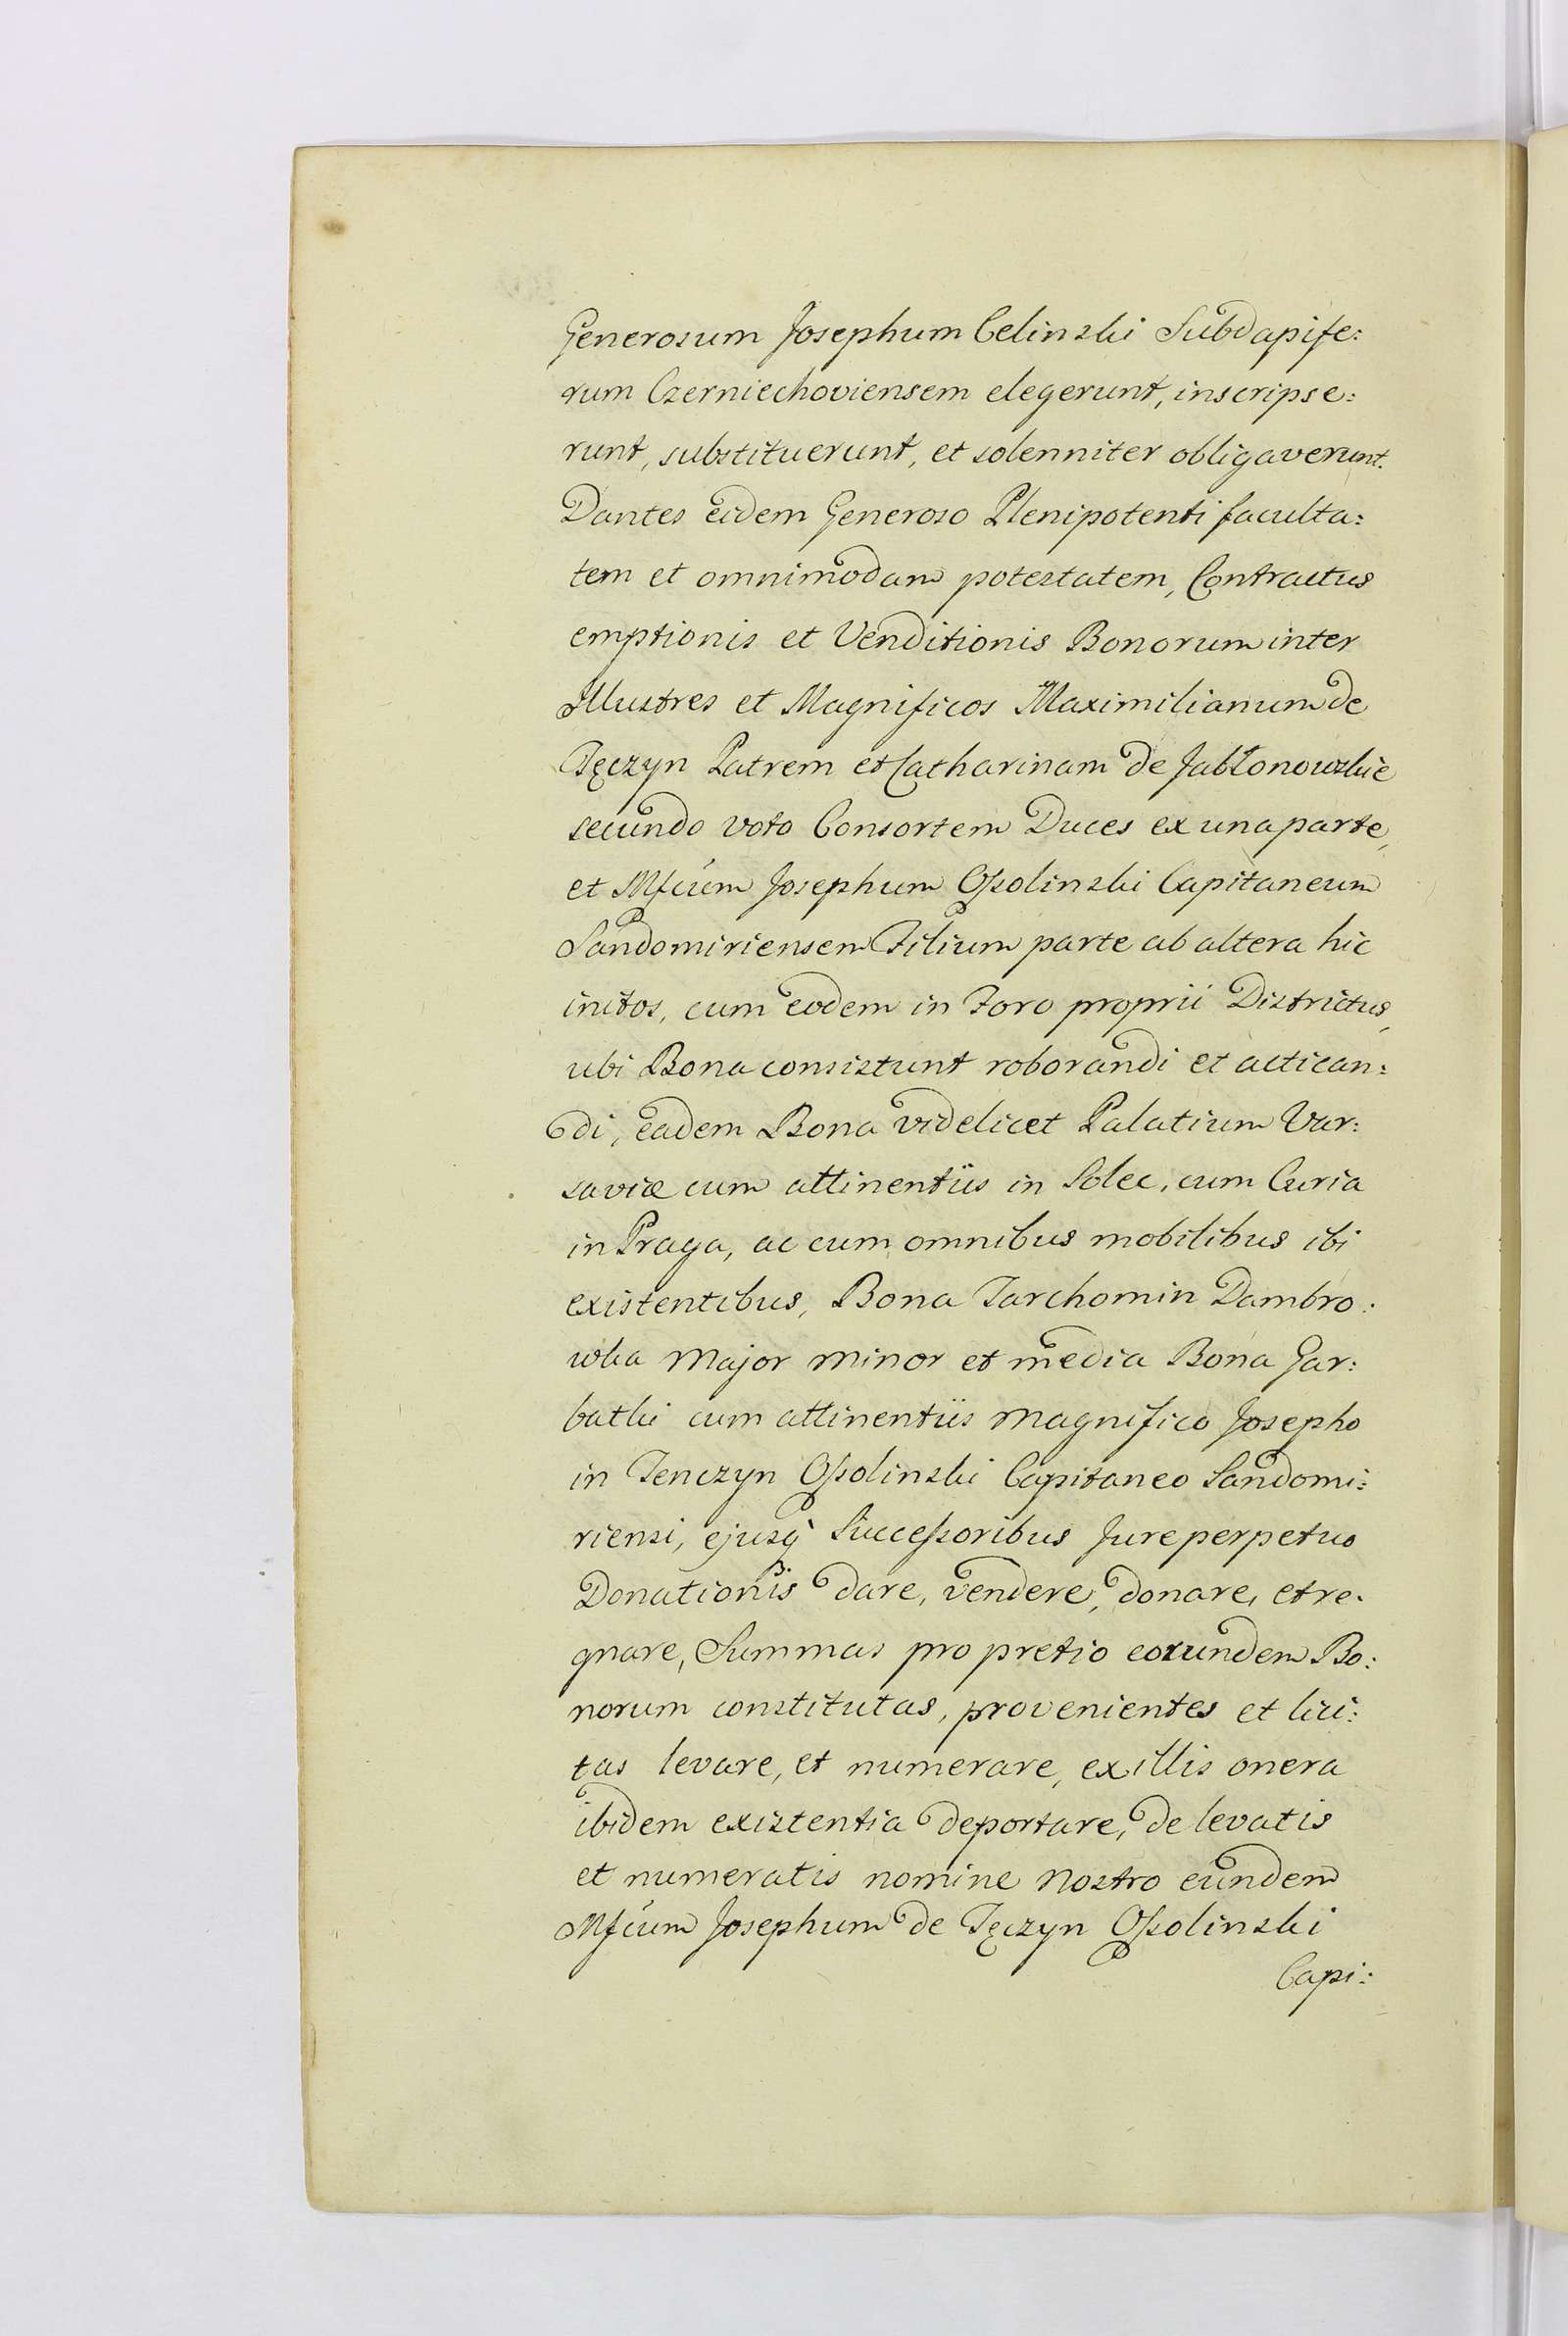 Generosum Josephum Celinski Subdapife:
rum Czerniechoviensem elegerunt, inscripse:
runt, substituerunt, et solenniter obligaverunt.
Dantes eidem Generoso Plenipotenti faculta:
tem et omnimodam potestatem, Contractus
emptionis et Venditionis Bonorum inter
Illustres et Magnificos Maximilianum de
Tęczyn Patrem et Catharinam de Jabłonowskie
secundo voto Consortem Duces ex una parte,
et Mficum Josephum Ossolinski Capitaneum
Sandomiriensem Filium parte ab altera hic
initos, cum eodem in Foro proprii Districtus,
ubi Bona consistunt roborandi et actican:
di, eadem Bona videlicet Palatium Var:
saviæ cum attinentiis in Solec, cum Curia
in Praga, ac cum omnibus mobilibus ibi
existentibus, Bona Tarchomin Dambro:
wka Major minor et media Bona Gar:
batki cum attinentiis Magnifico Josepho
in Tenczyn Ossolinski Capitaneo Sandomi:
riensi, ejusq Successoribus Jure perpetuo
Donationis dare, vendere, donare, et re:
gnare, Summas pro pretio eorundem Bo:
norum constitutas, provenientes et lici:
tas levare, et numerare, ex illis onera
ibidem existentia deportare, de levatis
et numeratis nomine Nostro eundem
Mficum Josephum de Tęczyn Ossolinski
Capi: